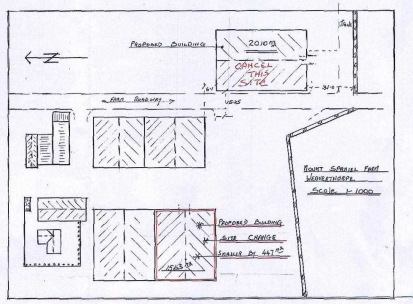 PROPOSED BUILDING
2010 m²
CANCEL
THIS
SITE
N
FARM ROADWAY
MOUNT SPANIEL FARM
WEAVERTHORPE
SCALE 1-1000
PROPOSED BUILDING
SITE CHANGE
SMALLER BY 447 m²
1563 m²